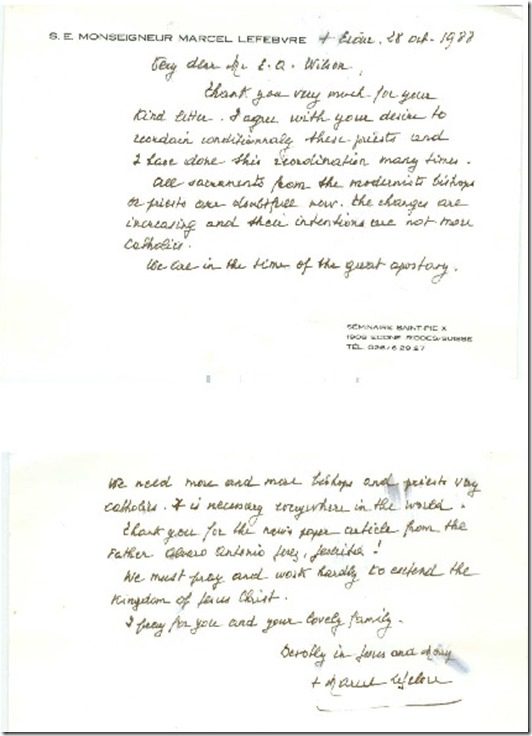 S. E. MONSEIGNEUR MARCEL LEFEBVRE + Ecône, 28 oct. 1988
Very dear Mr E. A. Wilson,
Thank you very much for your
kind letter. I agree with your desire to
reordain conditionnaly these priests and
I have done this reordination many times.
All sacraments from the modernists bishops
or priests are doubtfull now. The changes are
increasing and their intentions are not more
catholics.
We are in the time of the great apostasy.
SÉMINAIRE SAINT-PIE X
1908 ECÔNE RIDDES/SUISSE
TÉL. 026/6 29 27
We need more and more bishops and priests very
catholics. It is necessary everywhere in the world.
Thank you for the news paper article from the
Father Alvaro Antonio Perez, Jesuita!
We must pray and work hardly to extend the
Kingdom of Jesus Christ.
I pray for you and your lovely family.
Devotly in Jesus and Mary
+ Marcel Lefebvre